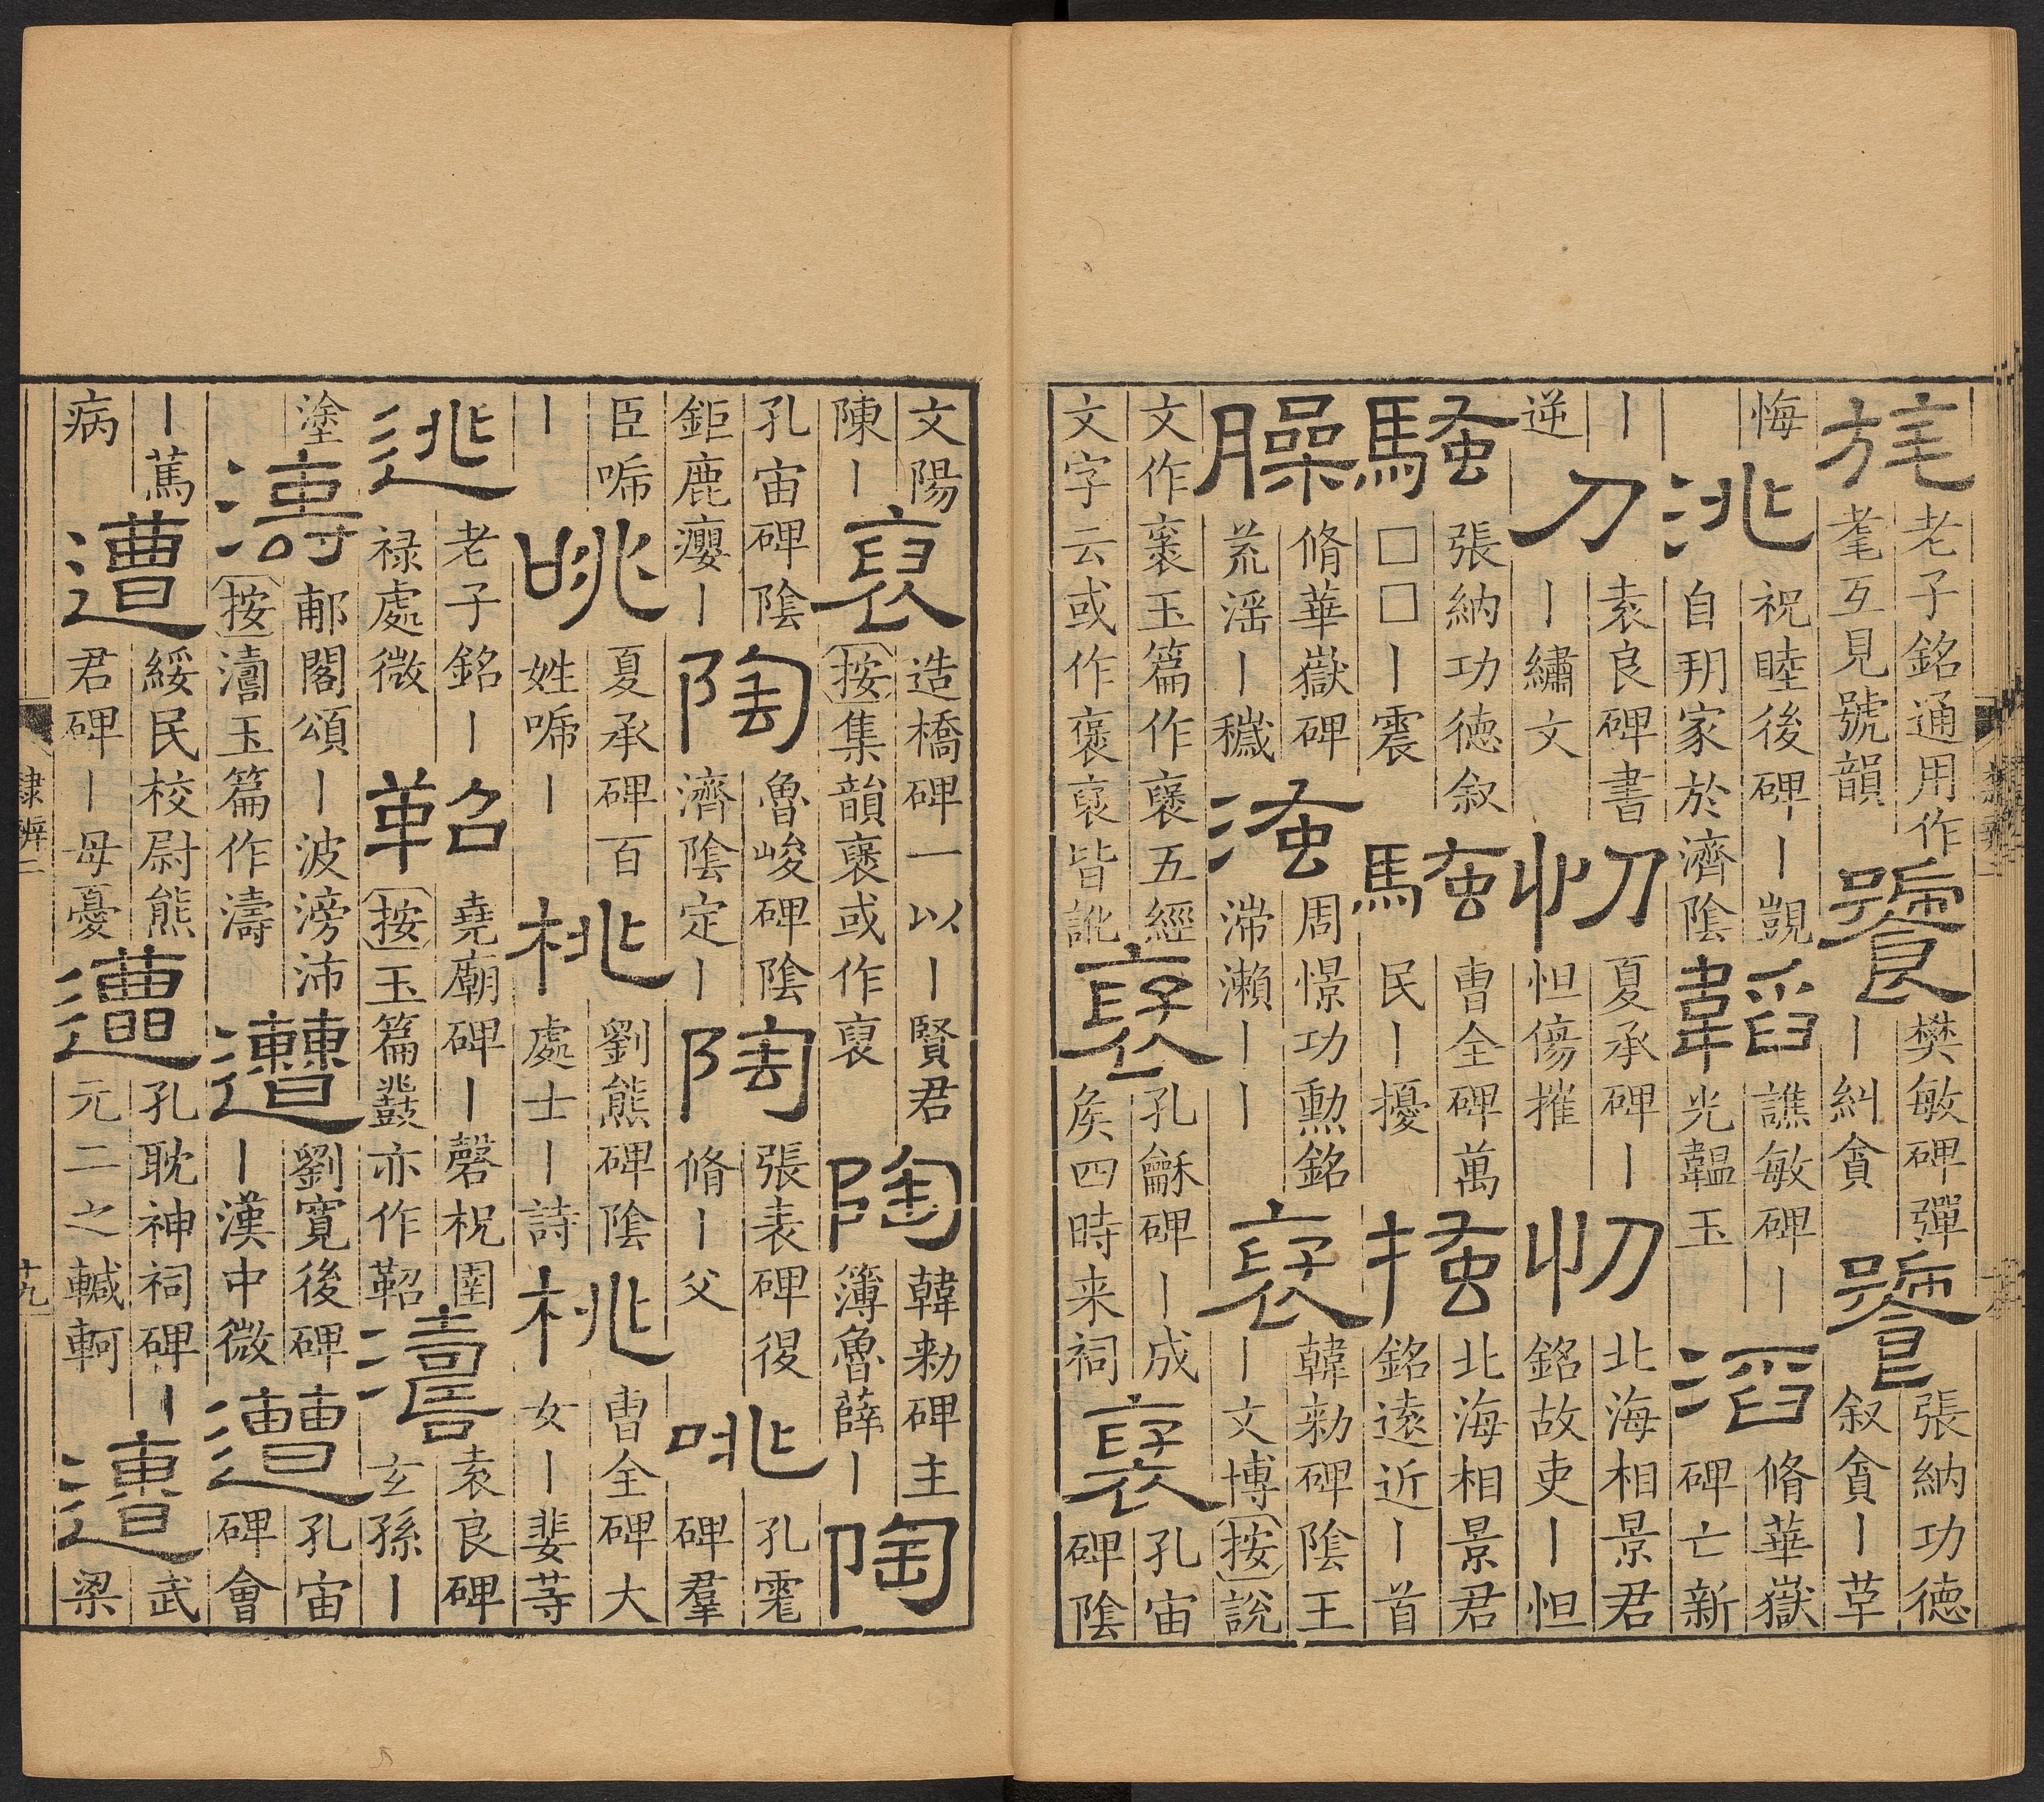 旄老子銘通用作耄互見號韻饕樊敏碑彈丨糾貪饕張納功德叙貪丨草
悔洮祝睦後碑丨覬自玥家於濟陰韜譙敏碑丨光韞玉滔脩華嶽碑亡新
丨逆刀袁良碑書丨繡文忉夏承碑丨怛傷摧忉北海相景君銘故吏丨怛
騷張納功德叙□□丨震騷曹全碑萬民丨擾搔北海相景君銘遠近丨首
臊脩華嶽碑荒滛丨穢溞周憬功勲銘滞瀨丨丨襃韓勑碑陰王丨文博按說
文作襃玉篇作襃五經文字云或作褒裒皆訛襃孔龢碑丨成矦四時来祠襃孔宙碑陰
文陽陳丨裒造橋碑一以丨賢君按集韻襃或作裒陶韓勑碑主簿魯薛丨陶
孔宙碑陰鉅鹿癭丨陶魯峻碑陰濟陰定丨陶張表碑復脩丨父咷孔碑羣
臣嗁丨咷夏承碑百姓嗁丨桃劉熊碑陰處士丨詩桃曹全碑大女丨婓䓁
逃老子銘丨禄處微鞀堯廟碑丨磬柷圉按玉篇鼗亦作鞀濤袁良碑玄孫丨
塗濤郙閣頌丨波滂沛按濤玉篇作濤遭劉寛後碑丨漢中微遭孔宙碑會
丨篤病遭綏民校尉熊君碑丨母憂遭孔耽神祠碑丨元二之轗軻遭武梁
隸辨二
十九